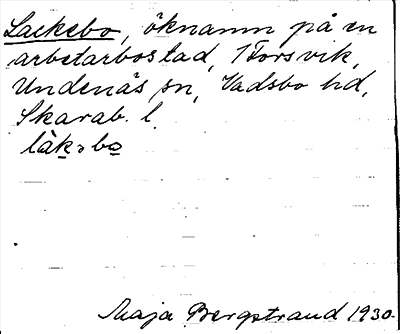 Lackebo, öknamn på en
arbetarbostad, Forsvik,
Undenäs sn, Vadsbo hd,
Skarab. l.
làkəbo
Maja Bergstrand 1930.